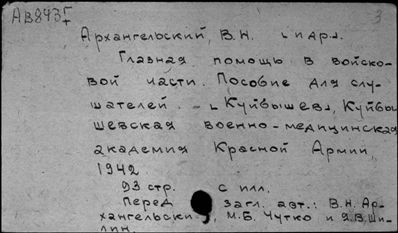 АВ843I
3
Архангельский, В.Н. [и др.].
Главная помощь в войско-
вой части. Пособие для слу-
шателей. - [Куйбышев], Куйбы-
шевская военно-медицинская
академия Красной Армии,
1942.
93 стр. с илл.
Перед загл. авт.: В.Н. Ар-
хангельский, М.Б. Чутко и Я.В. Ши-
лин.